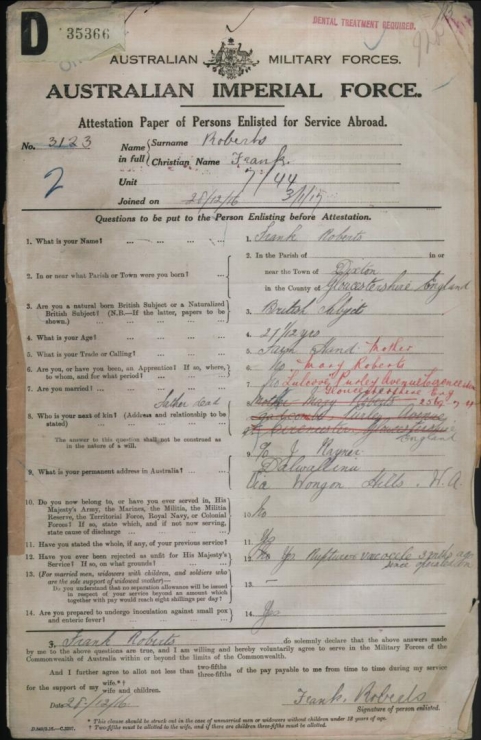 D 35366
DENTAL TREATMENT REQUIRED.
AUSTRALIAN MILITARY FORCES.
AUSTRALIAN IMPERIAL FORCE.
Attestation Paper of Persons Enlisted for Service Abroad.
No. 3123
Name in full { Surname Roberts
Christian Name Frank.
2
Unit 7/44
Joined on 28/12/16 3/1/17
Questions to be put to the Person Enlisting before Attestation.
1. What is your Name? ... 1. Frank Roberts
2. In or near what Parish or Town were you born? ... 2. In the Parish of In or
near the Town of
in the County of Gloucestershire England
3. Are you a natural born British Subject or a Naturalized
British Subject? (N.B.—If the latter, papers to be
shown.) 3. British Subject
4. What is your Age? 4.
5. What is your Trade or Calling? 5. Farm Hand Mother
6. Are you, or have you been, an Apprentice? If so, where,
to whom, and for what period? 6. No Mary Roberts
7. Are you married? 7. No
Father dead
8. Who is your next of kin? (Address and relationship to be
stated) Mother Mary
England
The answer to this question shall not be construed as
in the nature of a will.
9. What is your permanent address in Australia? 9. C/o J.
Dalwallinu
Via Wongon Hills. W.A
10. Do you now belong to, or have you ever served in, His
Majesty's Army, the Marines, the Militia, the Militia
Reserve, the Territorial Force, Royal Navy, or Colonial
Forces? If so, state which, and if not now serving,
state cause of discharge 10. No
11. Have you stated the whole, if any, of your previous service? 11. Yes
12. Have you ever been rejected as unfit for His Majesty's
Service? If so, on what grounds? 12. Yes
since operation
13. (For married men, widowers with children, and soldiers who
are the sole support of widowed mother)—
Do you understand that no separation allowance will be issued
in respect of your service beyond an amount which
together with pay would reach eight shillings per day? 13. —
14. Are you prepared to undergo inoculation against small pox
and enteric fever? 14. Yes
I, Frank Roberts do solemnly declare that the above answers made
by me to the above questions are true, and I am willing and hereby voluntarily agree to serve in the Military Forces of the
Commonwealth of Australia within or beyond the limits of the Commonwealth.
And I further agree to allot not less than two-fifths three-fifths of the pay payable to me from time to time during my service
for the support of my wife.* wife and children.
Date 28/12/16
Frank. Roberts
Signature of person enlisted.
* This clause should be struck out in the case of unmarried men or widowers without children under 18 years of age.
† Two-fifths must be allotted to the wife, and if there are children three-fifths must be allotted.